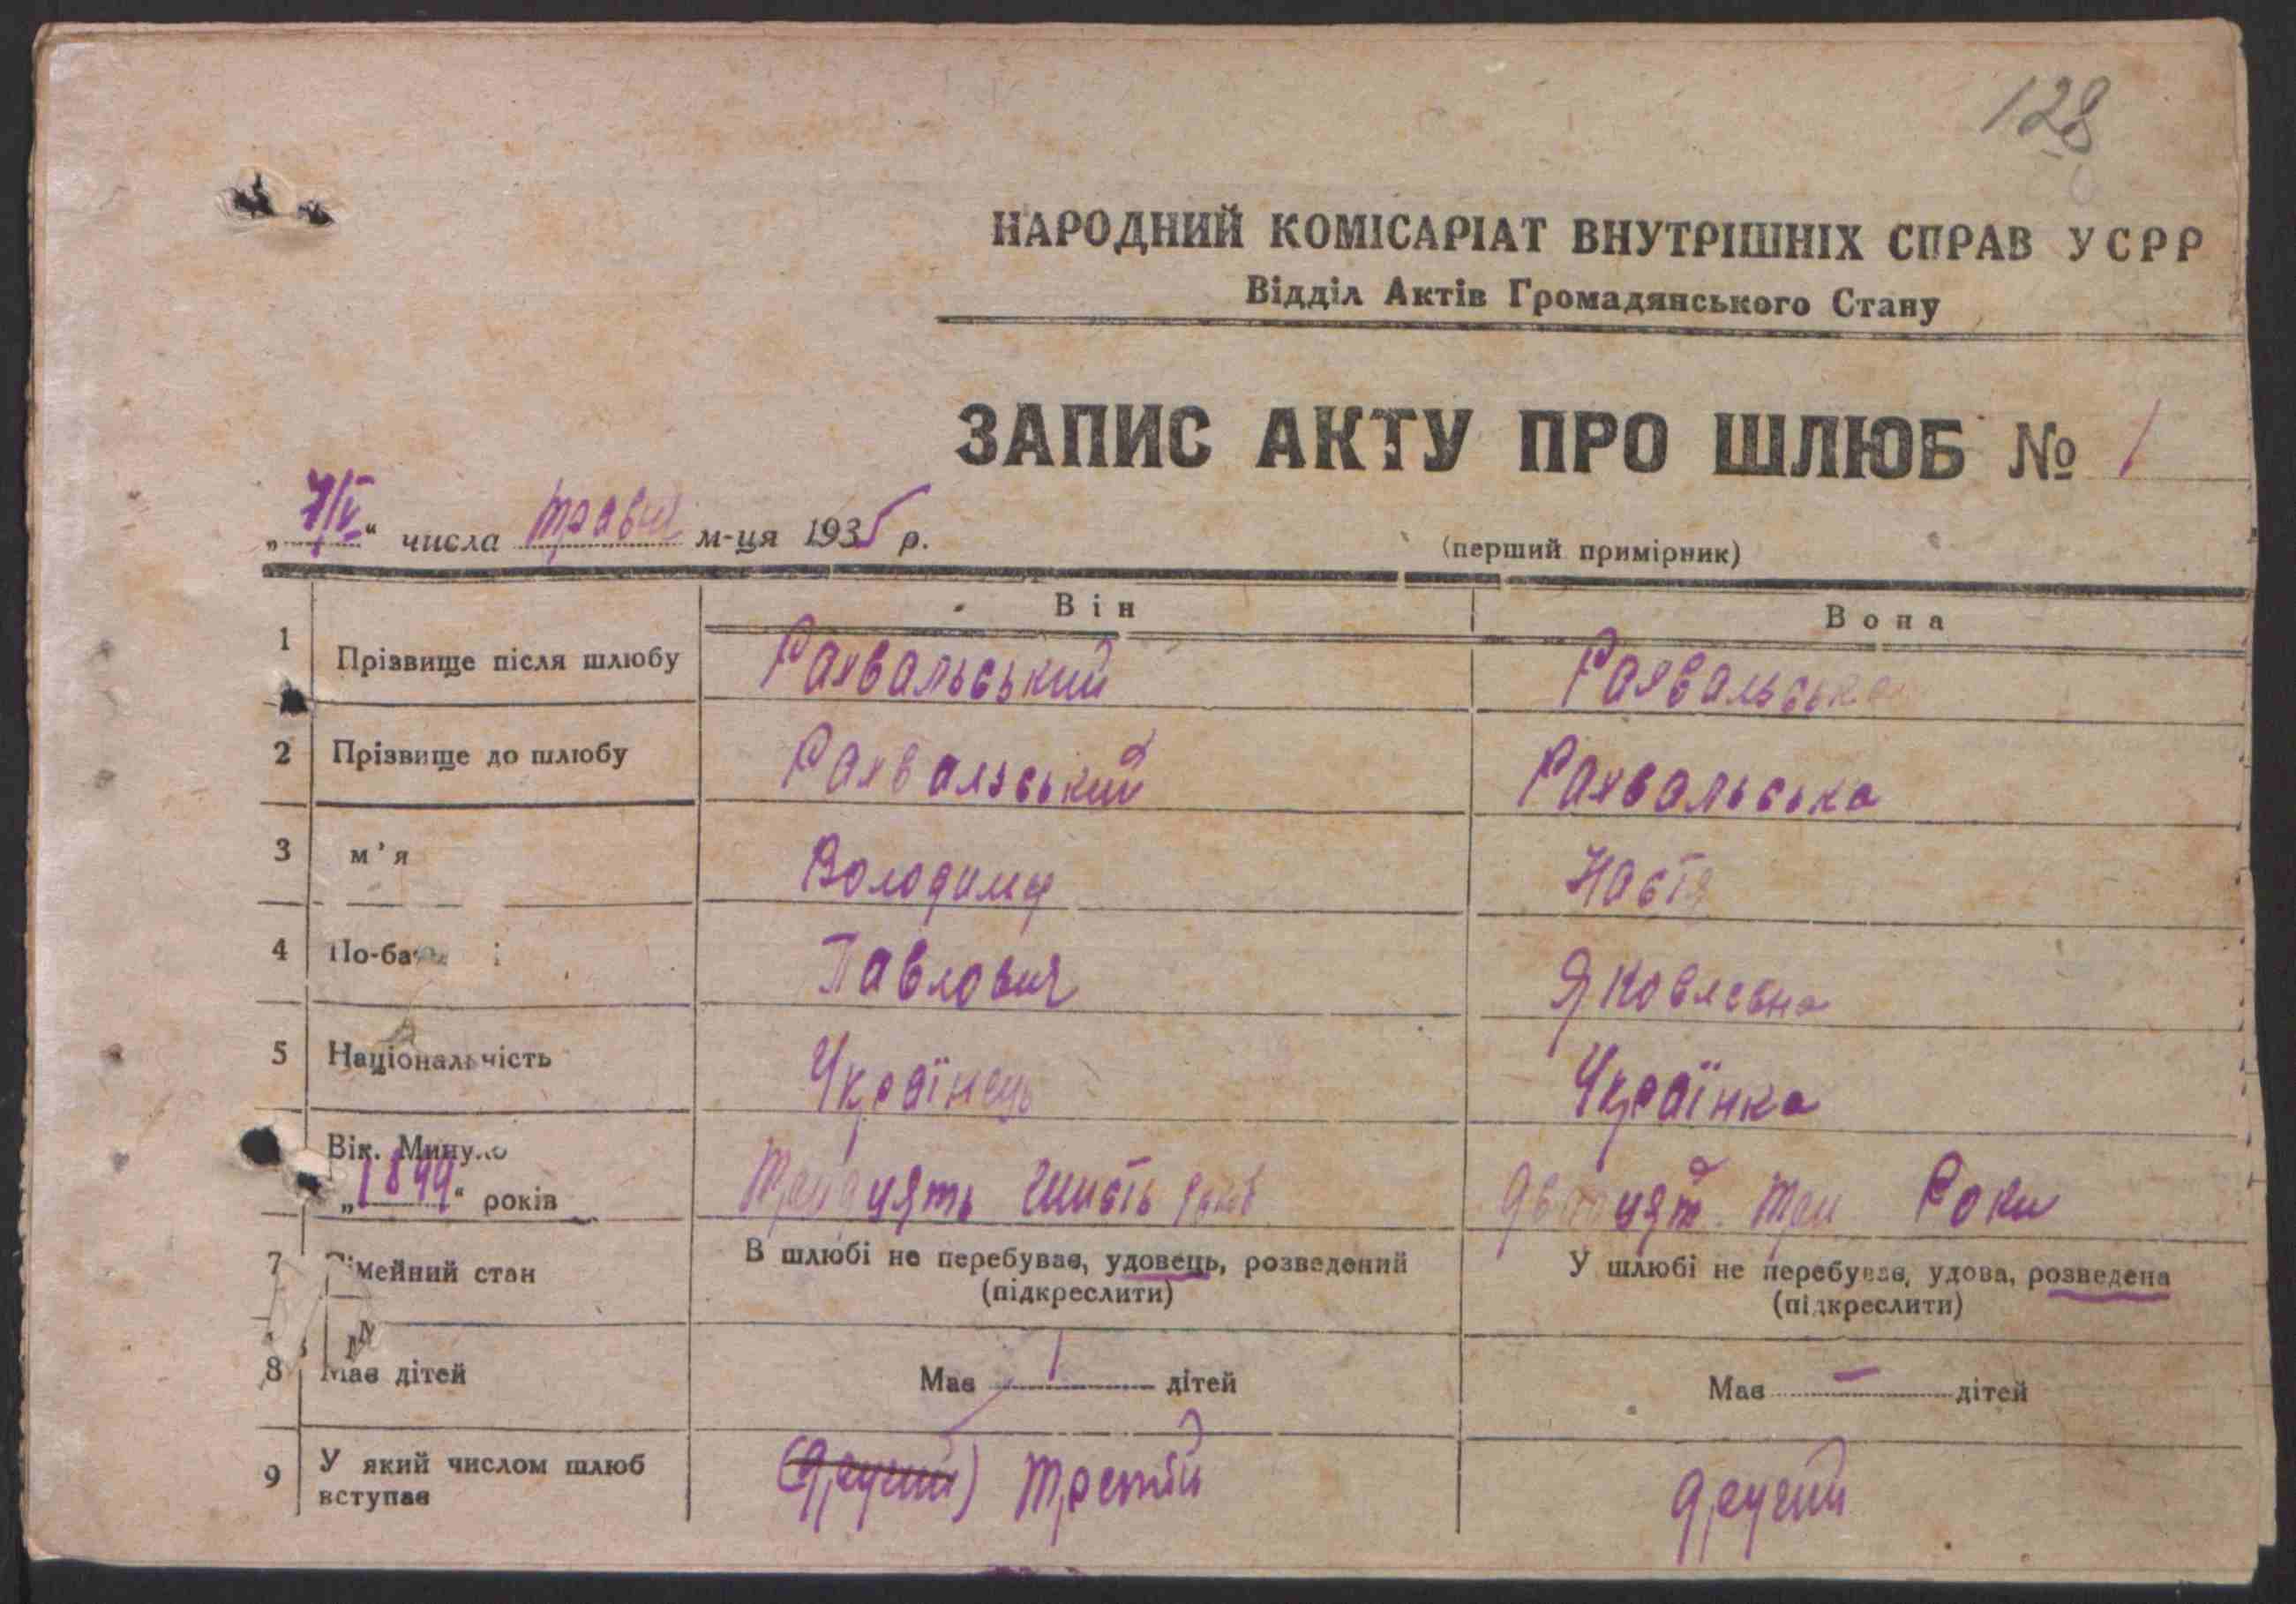 128
НАРОДНИЙ КОМІСАРІАТ ВНУТРІШНІХ СПРАВ УСРР
Відділ Актів Громадянського Стану
ЗАПИС АКТУ ПРО ШЛЮБ № 1
„7/V“ числа травня м-ця 1935 р.
(перший примірник)
Він Вона
1 Прізвище після шлюбу Рахвальський Рахвальська
2 Прізвище до шлюбу Рахвальський Рахвальська
3 м'я Володимир Настя
4 По-ба Павлович Яковлевна
5 Національність Українець Українка
Вік. Минуло
„1899“ років Тридцять шисть років двадцять три Роки
7 мейний стан В шлюбі не перебуває, удовець, розведений У шлюбі не перебуває, удова, розведена
(підкреслити) (підкреслити)
8 Має дітей Має 1 дітей Має — дітей
9 У який числом шлюб вступає (другий) третій другий